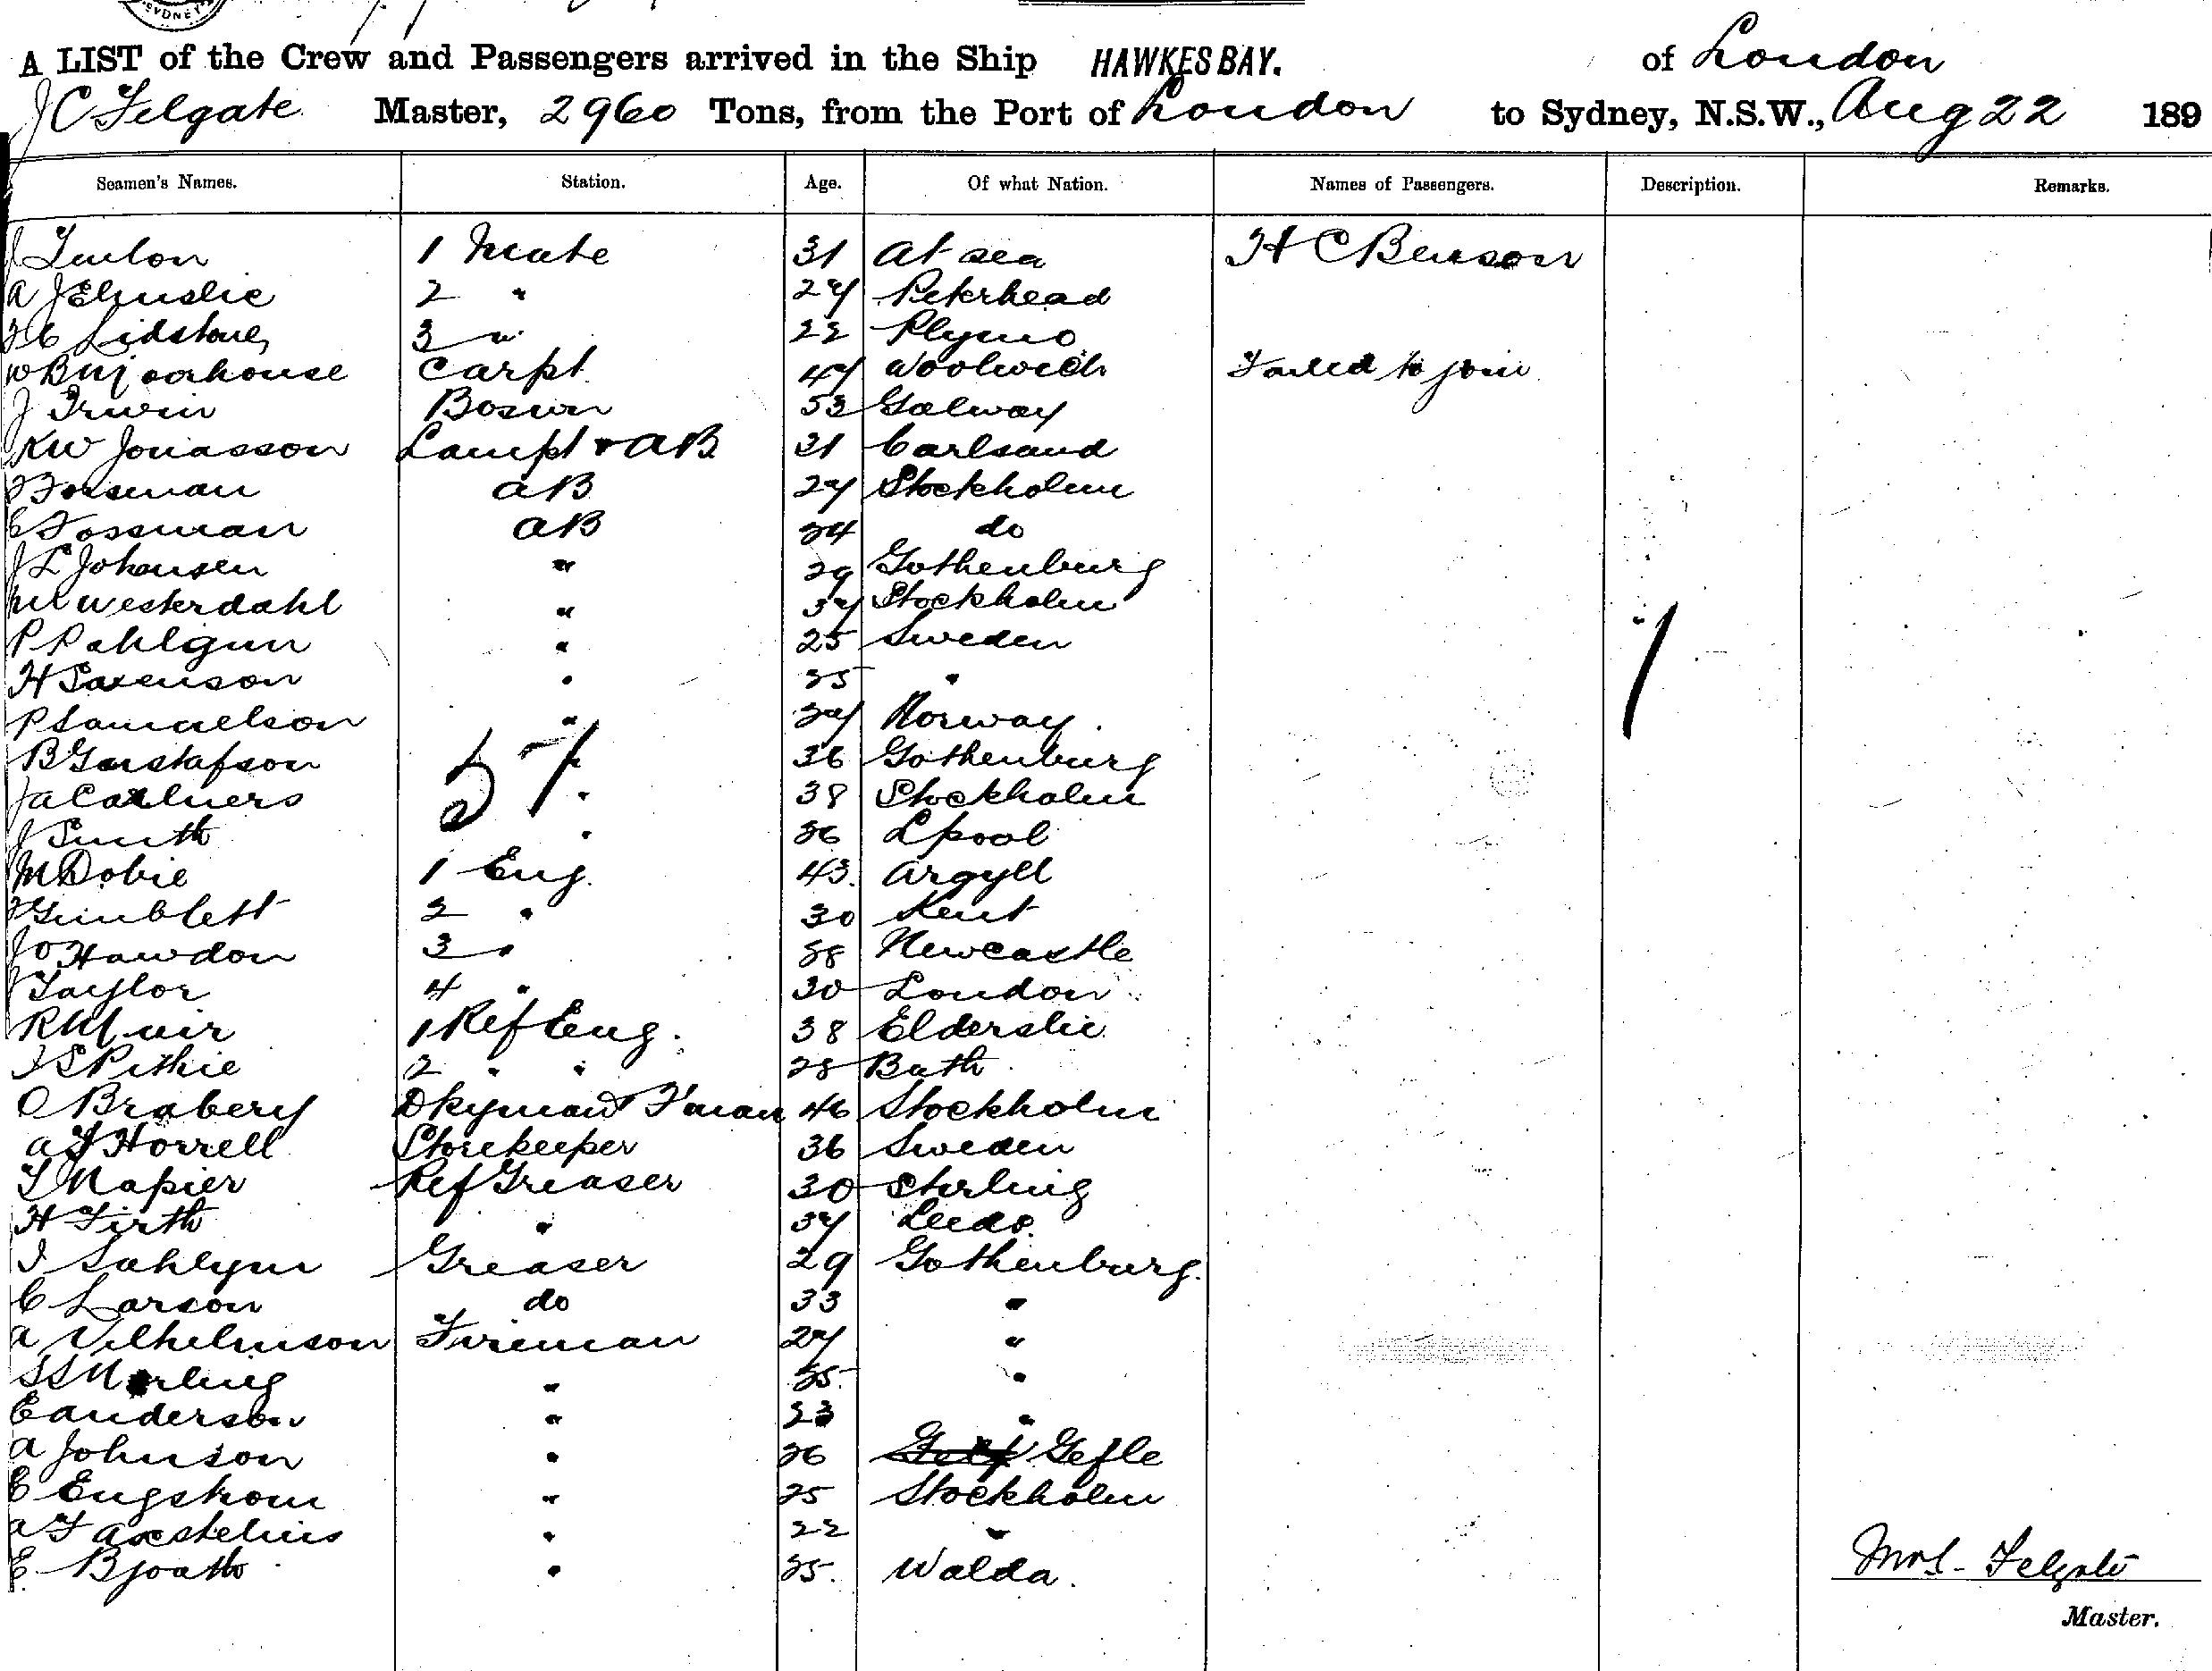 SYDNEY
A LIST of the Crew and Passengers arrived in the Ship HAWKES BAY. of London
J C Felgate Master, 2960 Tons, from the Port of London to Sydney, N.S.W., Aug 22 189
Seamen's Names. Station. Age. Of what Nation. Names of Passengers. Description. Remarks.
1 Mate 31 At sea H C Benson
A J Elmslie 2 " 27 Peterhead
Lidstone 3 " 22 Plymo
W B Moorhouse Carpt 47 Woolwich Failed to join
J Irwin Bosun 53 Galway
K W Jonasson Lampt & AB 31 Carlsand
Forsman AB 27 Stockholm
E Fossman AB 24 do
J L Johansen " 29 Gothenburg
Westerdahl " 37 Stockholm
P Pahlgun " 25 Sweden
H Swenson " 25 "
P Samuelson " 27 Norway.
B Gustafson 36 Gothenburg
57
1
J A " 38 Stockholm
J Smith " 36 Lpool
M Dobie 1 Eng. 43. Argyll
Gimblett 2 " 30 Kent
J O Hawdon 3 " 28 Newcastle
J Taylor 4 " 30 London
R Muir 1 Ref Eng. 38 Elderslie
J S Pithie 2 " " 28 Bath
O Brabery Dkyman & F'man 46 Stockholm
A J Horrell Storekeeper 36 Sweden
T Napier Ref Greaser 30 Stirling
H Firth " 37 Leeds.
Greaser 29 Gothenburg.
C Larson do 33 "
A Vilhelmson Fireman 27 "
" 25. "
E Anderson " 23 "
A Johnson " 26 Gefle
E Engstrom " 25 Stockholm
A F Axstelius " 22 "
E " 25. Walda.
Felgate
Master.